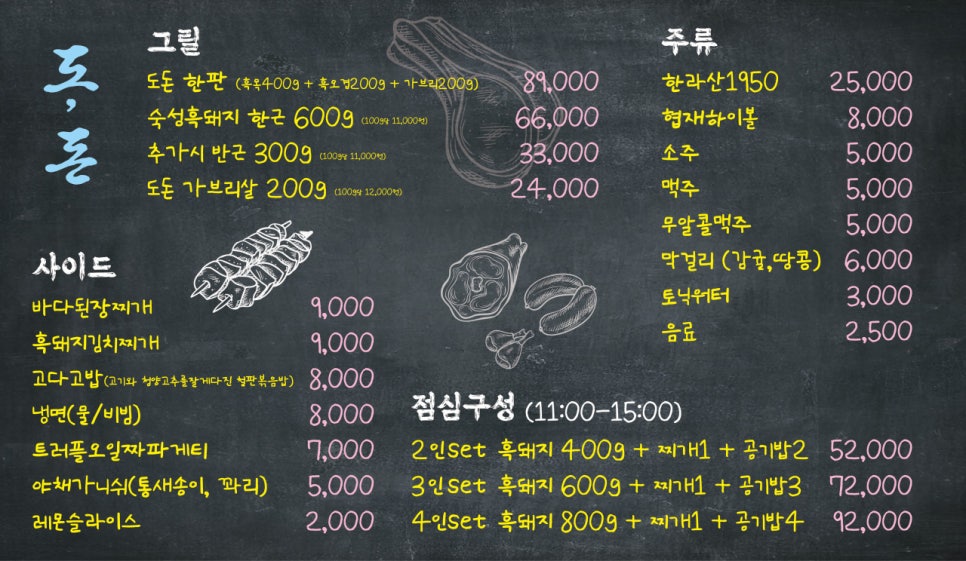 도, 돈
그릴
도돈 한판 (흑목400g + 흑오겹200g + 가브리200g) 89,000
숙성흑돼지 한근 600g (100g당 11,000원) 66,000
추가시 반근 300g (100g당 11,000원) 33,000
도돈 가브리살 200g (100g당 12,000원) 24,000
사이드
바다된장찌개 9,000
흑돼지김치찌개 9,000
고다고밥(고기와 청양고추를잘게다진 철판볶음밥) 8,000
냉면(물/비빔) 8,000
트러플오일짜파게티 7,000
야채가니쉬(통새송이, 꽈리) 5,000
레몬슬라이스 2,000
주류
한라산1950 25,000
협재하이볼 8,000
소주 5,000
맥주 5,000
무알콜맥주 5,000
막걸리 (감귤,땅콩) 6,000
토닉워터 3,000
음료 2,500
점심구성 (11:00-15:00)
2인set 흑돼지 400g + 찌개1 + 공기밥2 52,000
3인set 흑돼지 600g + 찌개1 + 공기밥3 72,000
4인set 흑돼지 800g + 찌개1 + 공기밥4 92,000